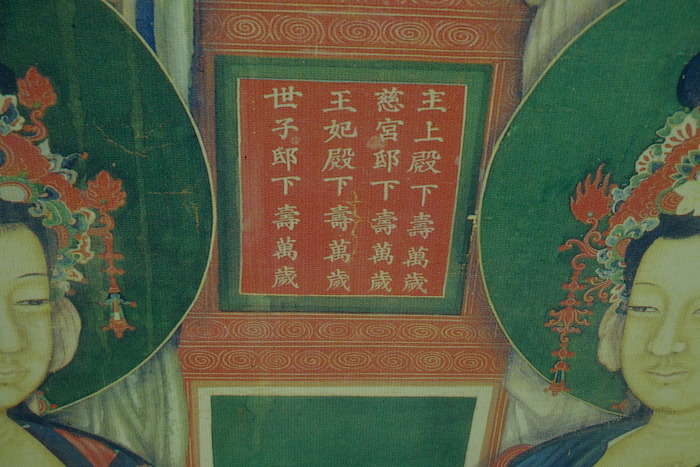 主上殿下壽萬歲
慈宮邸下壽萬歲
王妃殿下壽萬歲
世子邸下壽萬歲